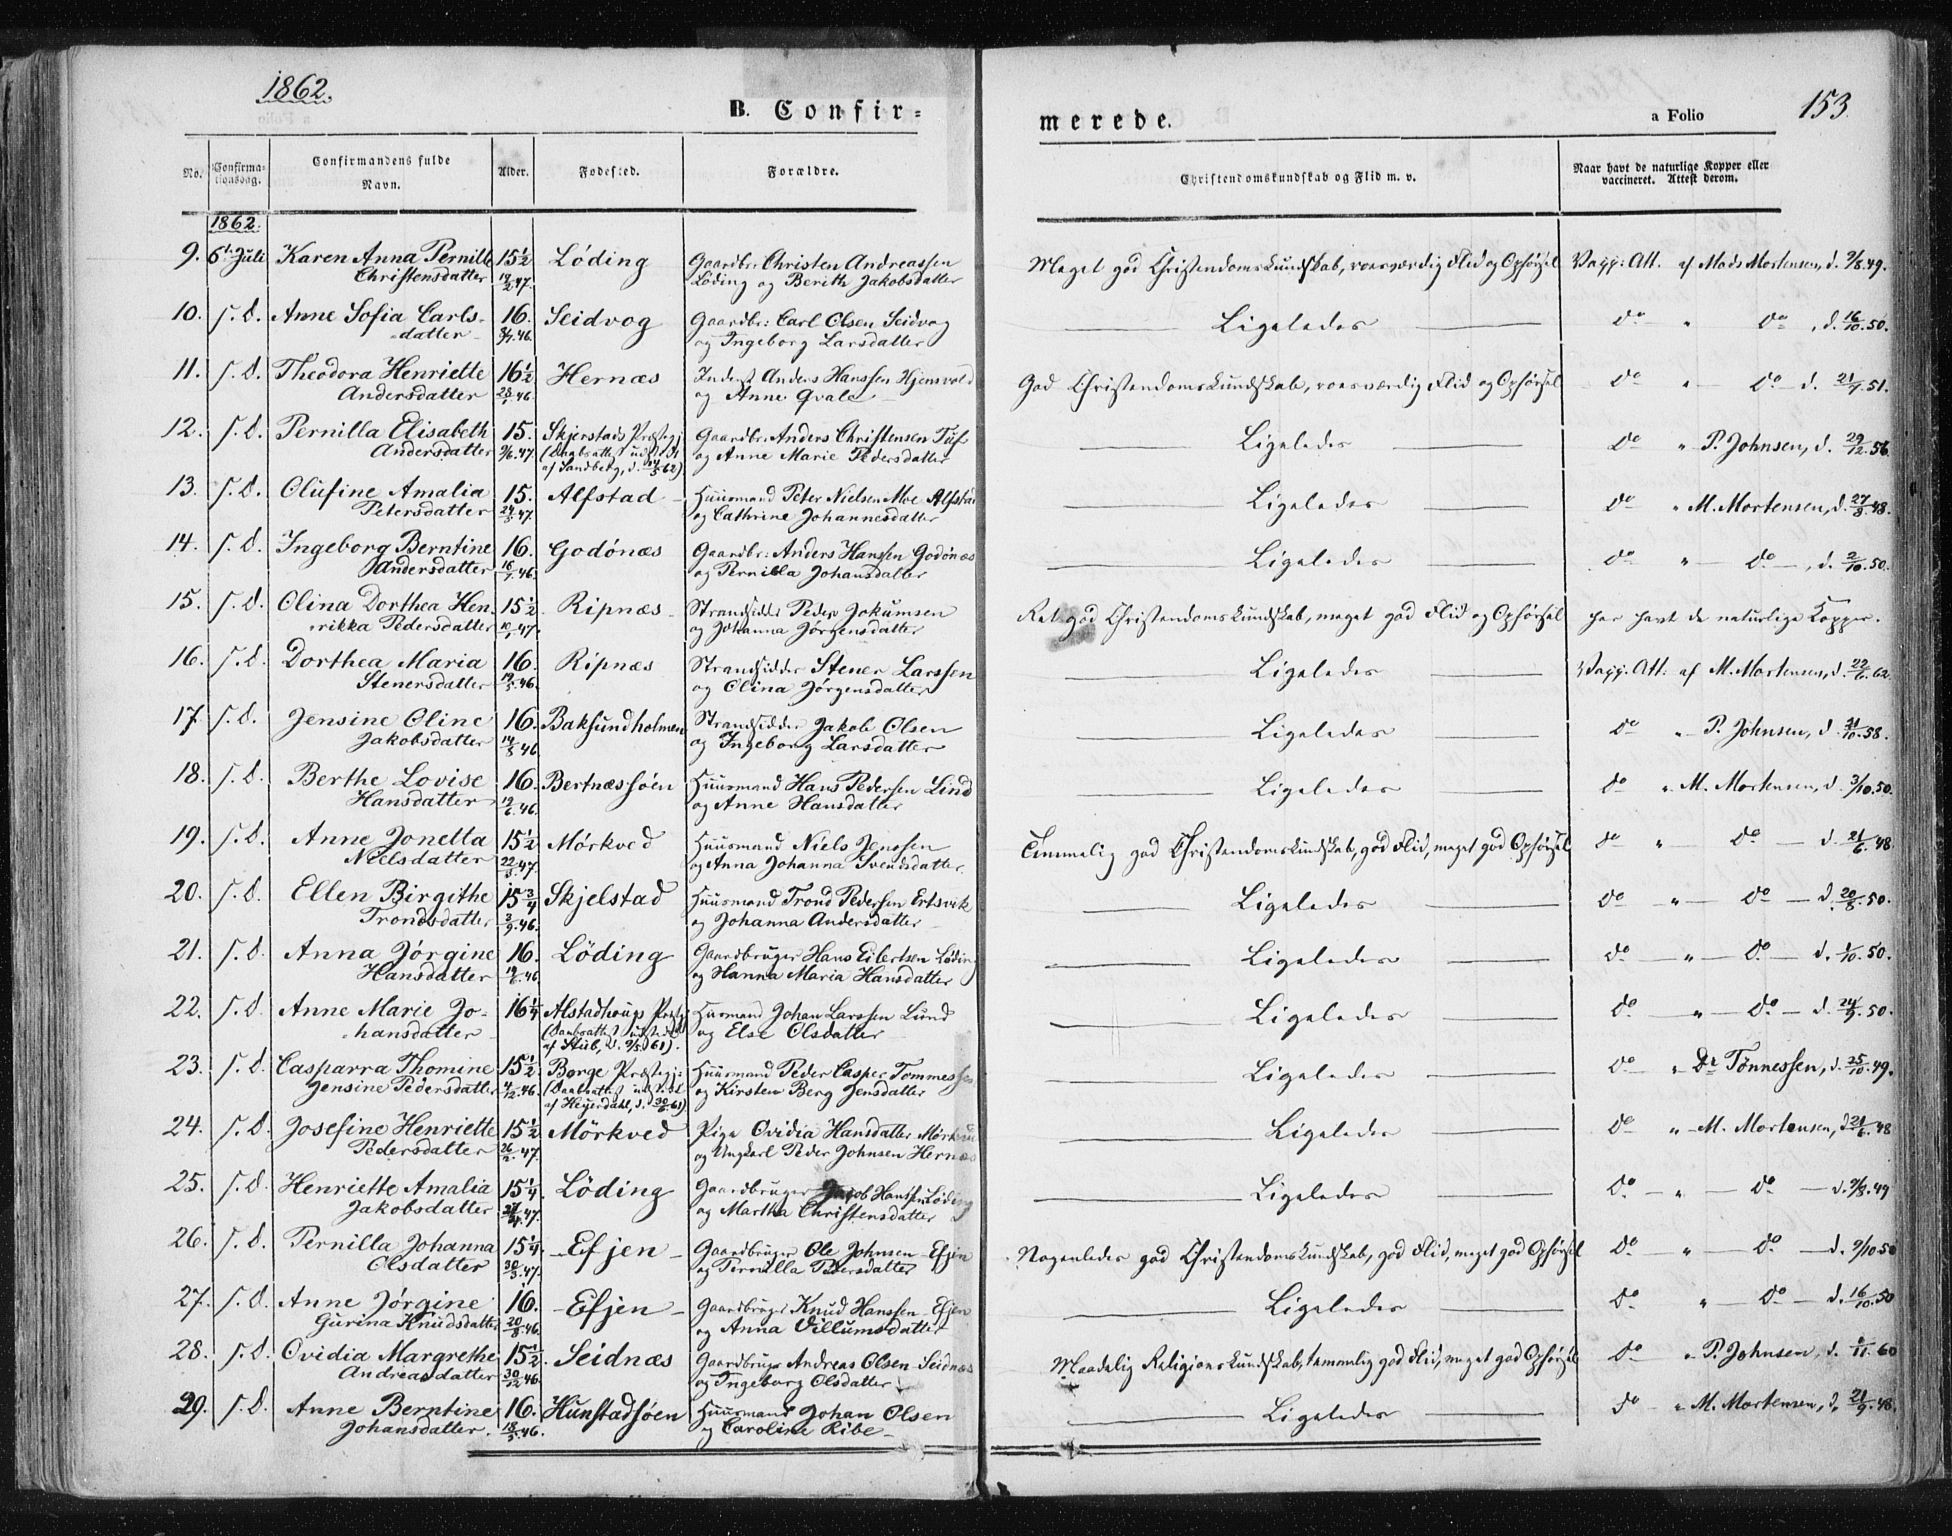 1862.
B. Confir=
merede.
a Folio
153.
No.
Confirma-
tionsdag.
Confirmandens fulde
Navn.
Alder.
Fødested.
Forældre.
Christendomskundskab og Flid m. v.
Naar havt de naturlige Kopper eller
vaccineret. Attest derom.
1862.
9. 6te Juli Karen Anna Pernille 15½ Löding Gaardbr: Christen Andreassen Meget god Christendomskundskab, roesværdig Flid og Opførsel Vacc: Att. af Mads Mortensen, d. 9/8.49.
Christensdatter 19/2.47. Löding og Berith Jakobsdatter
10. s. d. Anne Sofia Carls- 16. Seidvog Gaardbr: Carl Olsen Seidvog Ligeledes do " do, d. 16/10.50.
datter 3/4.46. og Ingeborg Larsdatter
11. s. d. Theodora Henriette 16½ Hernæs Inderst Anders Hanssen Hjemvold God Christendomskundskab, roesværdig Flid og Opførsel do " do d. 21/7.51.
Andersdatter 28/1.46. og Anne Qvale
12. s. d. Pernilla Elisabeth 15. Skjerstads Præstegj: Gaardbr. Anders Christensen Tuf Ligeledes do " P. Johnsen, d. 29/12.56.
Andersdatter 9/6.47. (Daabsattest udst. af Sandberg, d. 14/5 62) og Anne Marie Pedersdatter
13. s. d. Olufine Amalia 15. Alfstad Huusmand Peter Nielsen Moe Alfstad Ligeledes do " M. Mortensen, d. 27/8.48.
Petersdatter 24/5.47. og Cathrine Johannesdatter
14. s. d. Ingeborg Berntine 16. Godönæs Gaardbr: Anders Hanssen Godönæs Ligeledes do " do, d. 2/10.50.
Andersdatter 16/7.46. og Pernilla Johansdatter
15. s. d. Olina Dorthea Hen- 15½ Ripnæs Strandsidder Peder Jokumsen Ret god Christendomskundskab, meget god Flid og Opførsel har havt de naturlige Kopper.
rikka Pedersdatter 10/1.47. og Johanna Jörgensdatter
16. s. d. Dorthea Maria 16. Ripnæs Strandsidder Stener Larssen Ligeledes Vacc. Att. af M. Mortensen, d. 22/6.62.
Stenersdatter 19/5.46. og Olina Jörgensdatter
17. s. d. Jensine Oline 16. Baksundholmen Strandsidder Jakob Olsen Ligeledes do " P. Johnsen, d. 21/10.58.
Jakobsdatter 14/5.46 og Ingeborg Larsdatter
18. s. d. Berthe Lovise 16. Bertnæssöen Huusmand Hans Pedersen Lind Ligeledes do " M. Mortensen, d. 3/10.50.
Hansdatter 19/6.46. og Anne Hansdatter
19. s. d. Anne Jonetta 15½ Mörkved Huusmand Niels Jenssen Temmelig god Christendomskundskab, god Flid, meget god Opførsel do " do d. 21/6.48.
Nielsdatter 22/3.47. og Anna Johanna Svendsdatter.
20. s. d. Ellen Birgithe 15¾ Skjelstad Huusmand Trond Pedersen Ertsvik Ligeledes do " do d. 20/8.50.
Trondsdatter 2/9.46. og Johanna Andersdatter
21. s. d. Anna Jörgine 16. Löding Gaardbruger Hans Eilertsen Löding Ligeledes do " do d. 1/10.50.
Hansdatter 19/6.46 og Hanna Maria Hansdatter
22. s. d. Anne Marie Jo- 16¼ Alstadhougs Præstgj. Husmand Johan Larssen Lund Ligeledes do " do d. 24/9.50.
hansdatter (Daabsattest udstedt af Stub, d. 9/5 61). og Else Olsdatter
23. s. d. Casparra Thomine 15½ Borge Præstegj: Huusmand Peder Casper Tommessen Ligeledes do " Dr Tønnessen, d. 25/10.49.
Jensine Pedersdatter 4/12.46. (Daabsattest udstedt af Heyerdahl, d. 30/6 61) og Kirsten Berg Jensdatter
24. s. d. Josefine Henriette 15½ Mörkved Pige Ovidia Hansdatter Mörkved Ligeledes do " M. Mortensen, d. 21/6.48
Pedersdatter 26/2.47. og Ungkarl Peder Johnsen Hernæs
25. s. d. Henriette Amalia 15¼ Löding Gaardbruger Jacob Hanssen Löding Ligeledes do " do d. 9/8.49
Jakobsdatter 4.47. og Martha Christensdatter
26. s. d. Pernilla Johanna 15¼ Efjen Gaardbruger Ole Johnsen Efjen Nogenledes god Christendomskundskab, god Flid, meget god Opførsel do " do d. 9/10.50
Olsdatter 30/3.47. og Pernilla Pedersdatter
27. s. d. Anne Jörgine 16. Efjen Gaardbruger Knud Hanssen Efjen Ligeledes do " do d. 16/10.50
Gurina Knudsdatter 20/8.46. og Anna Villumsdatter
28. s. d. Ovidia Margrethe 15½. Seidnæs Gaardbruger Andreas Olsen Seidnæs Maadelig Religionskundskab, temmelig god Flid, meget god Opførsel do " P. Johnsen, d. /11.60
Andreasdatter 30/12.46. og Ingeborg Olsdatter
29. s. d. Anne Berntine 16. Hunstadsöen Huusmand Johan Olsen Ligeledes do " M. Mortensen, d. 21/9.48.
Johansdatter. 18/5.46. og Caroline Ribe